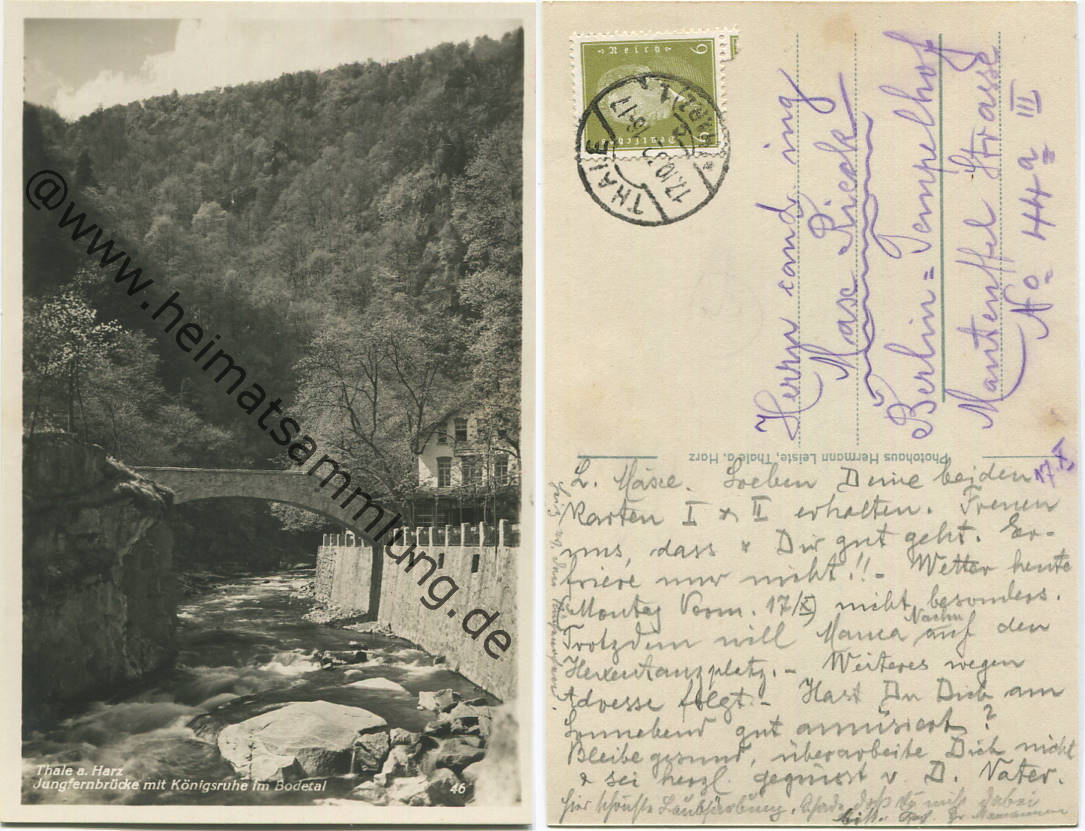 @www.heimatsammlung.de
Thale a. Harz
Jungfernbrücke mit Königsruhe im Bodetal
46
6
Deutsches
6
THALE
17.10.32
(HARZ)
Herrn cand. ing
Max Rieck
Berlin = Tempelhof
Manteuffel Strasse
No 44a III
Photohaus Hermann Leiste, Thale a. Harz
17/X
L. Mäxe. Soeben Deine beiden
Karten I & II erhalten. Freuen
uns, dass es Dir gut geht. Er-
friere nur nicht!! - Wetter heute
(Montag Vorm. 17/X) nicht besonders.
Trotzdem will Mama Nachm auf den
Hexentanzplatz. - Weiteres wegen
Adresse folgt. - Hast Du Dich am
Sonnabend gut amüsiert?
Bleibe gesund, überarbeite Dich nicht
& sei herzl. gegrüsst v. D. Vater.
Hier schönste Laubfärbung, schade, daß Du nicht dabei
bist.